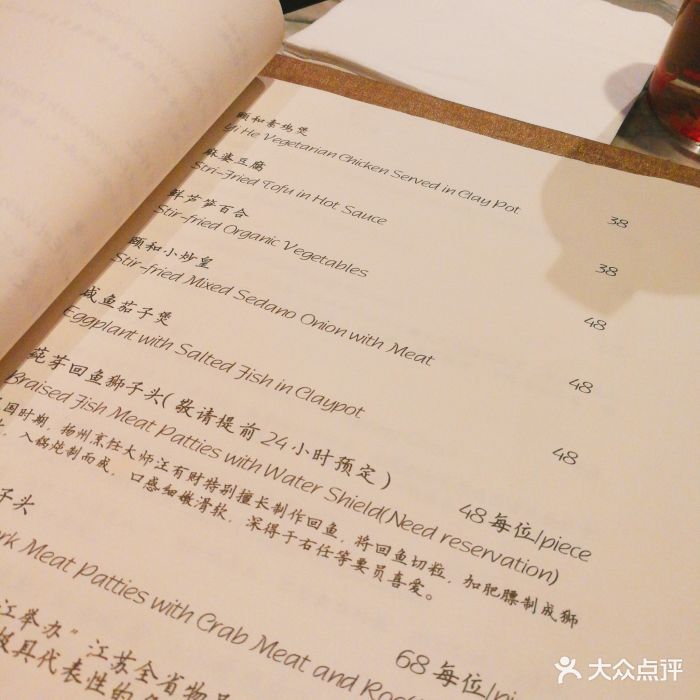 颐和素鸡煲
Yi He Vegetarian Chicken Served in Clay Pot 38
麻婆豆腐
Stri-Fried Tofu in Hot Sauce 38
鲜芦笋百合
Stir-fried Organic Vegetables 48
颐和小炒皇
Stir-fried Mixed Sedano Onion with Meat 48
咸鱼茄子煲
Eggplant with Salted Fish in Claypot 48
莼芽回鱼狮子头(敬请提前24小时预定) 48每位/piece
Braised Fish Meat Patties with Water Shield(Need reservation)
国时期，扬州烹饪大师江有财特别擅长制作回鱼，将回鱼切粒，加肥膘制成狮
入锅炖制而成，口感细嫩滑软，深得于右任等要员喜爱。
子头 68每位/
Meat Patties with Crab Meat and
江举办"江苏全省物品
极具代表性的
大众点评